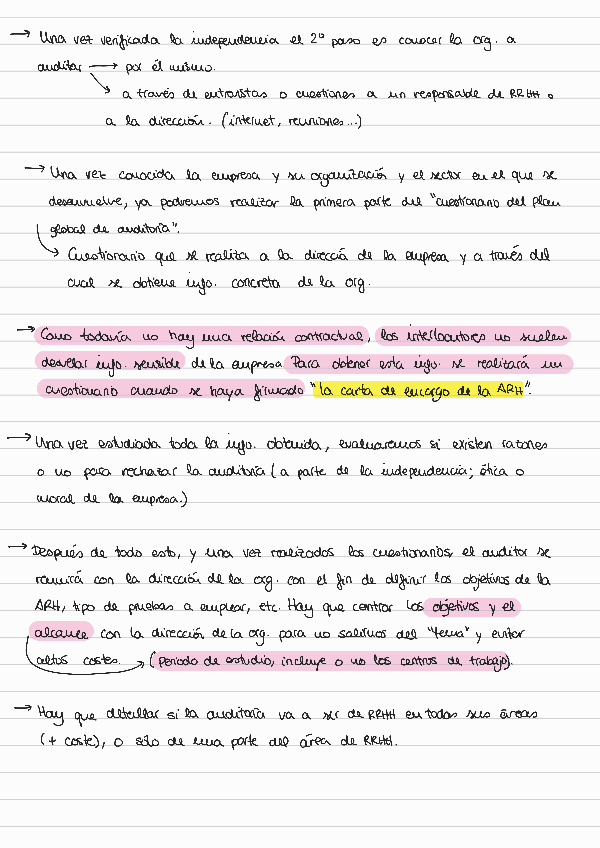 → Una vez verificada la independencia el 2º paso es conocer la org. a
auditar → por él mismo.
↘ a través de entrevistas o cuestiones a un responsable de RRHH o
a la dirección. (internet, reuniones...)
→ Una vez conocida la empresa y su organización y el sector en el que se
desenvuelve, ya podremos realizar la primera parte del "cuestionario del plan
global de auditoría".
↳ Cuestionario que se realiza a la direcció de la empresa y a través del
cual se obtiene info. concreta de la org.
→ Como todavía no hay una relación contractual, los interlocutores no suelen
desvelar info. sensible de la empresa. Para obtener esta info. se realizará un
cuestionario cuando se haya firmado "la carta de encargo de la ARH".
→ Una vez estudiada toda la info. obtenida, evaluaremos si existen razones
o no para rechazar la auditoría (a parte de la independencia; ética o
moral de la empresa.)
→ Después de todo esto, y una vez realizados los cuestionarios, el auditor se
reunirá con la dirección de la org. con el fin de definir los objetivos de la
ARH, tipo de pruebas a emplear, etc. Hay que centrar los objetivos y el
alcance con la dirección de la org. para no salirnos del "tema" y evitar
altos costes. → (periodo de estudio, incluye o no los centros de trabajo).
→ Hay que detallar si la auditoría va a ser de RRHH en todas sus áreas
(+ coste), o sólo de una parte del área de RRHH.